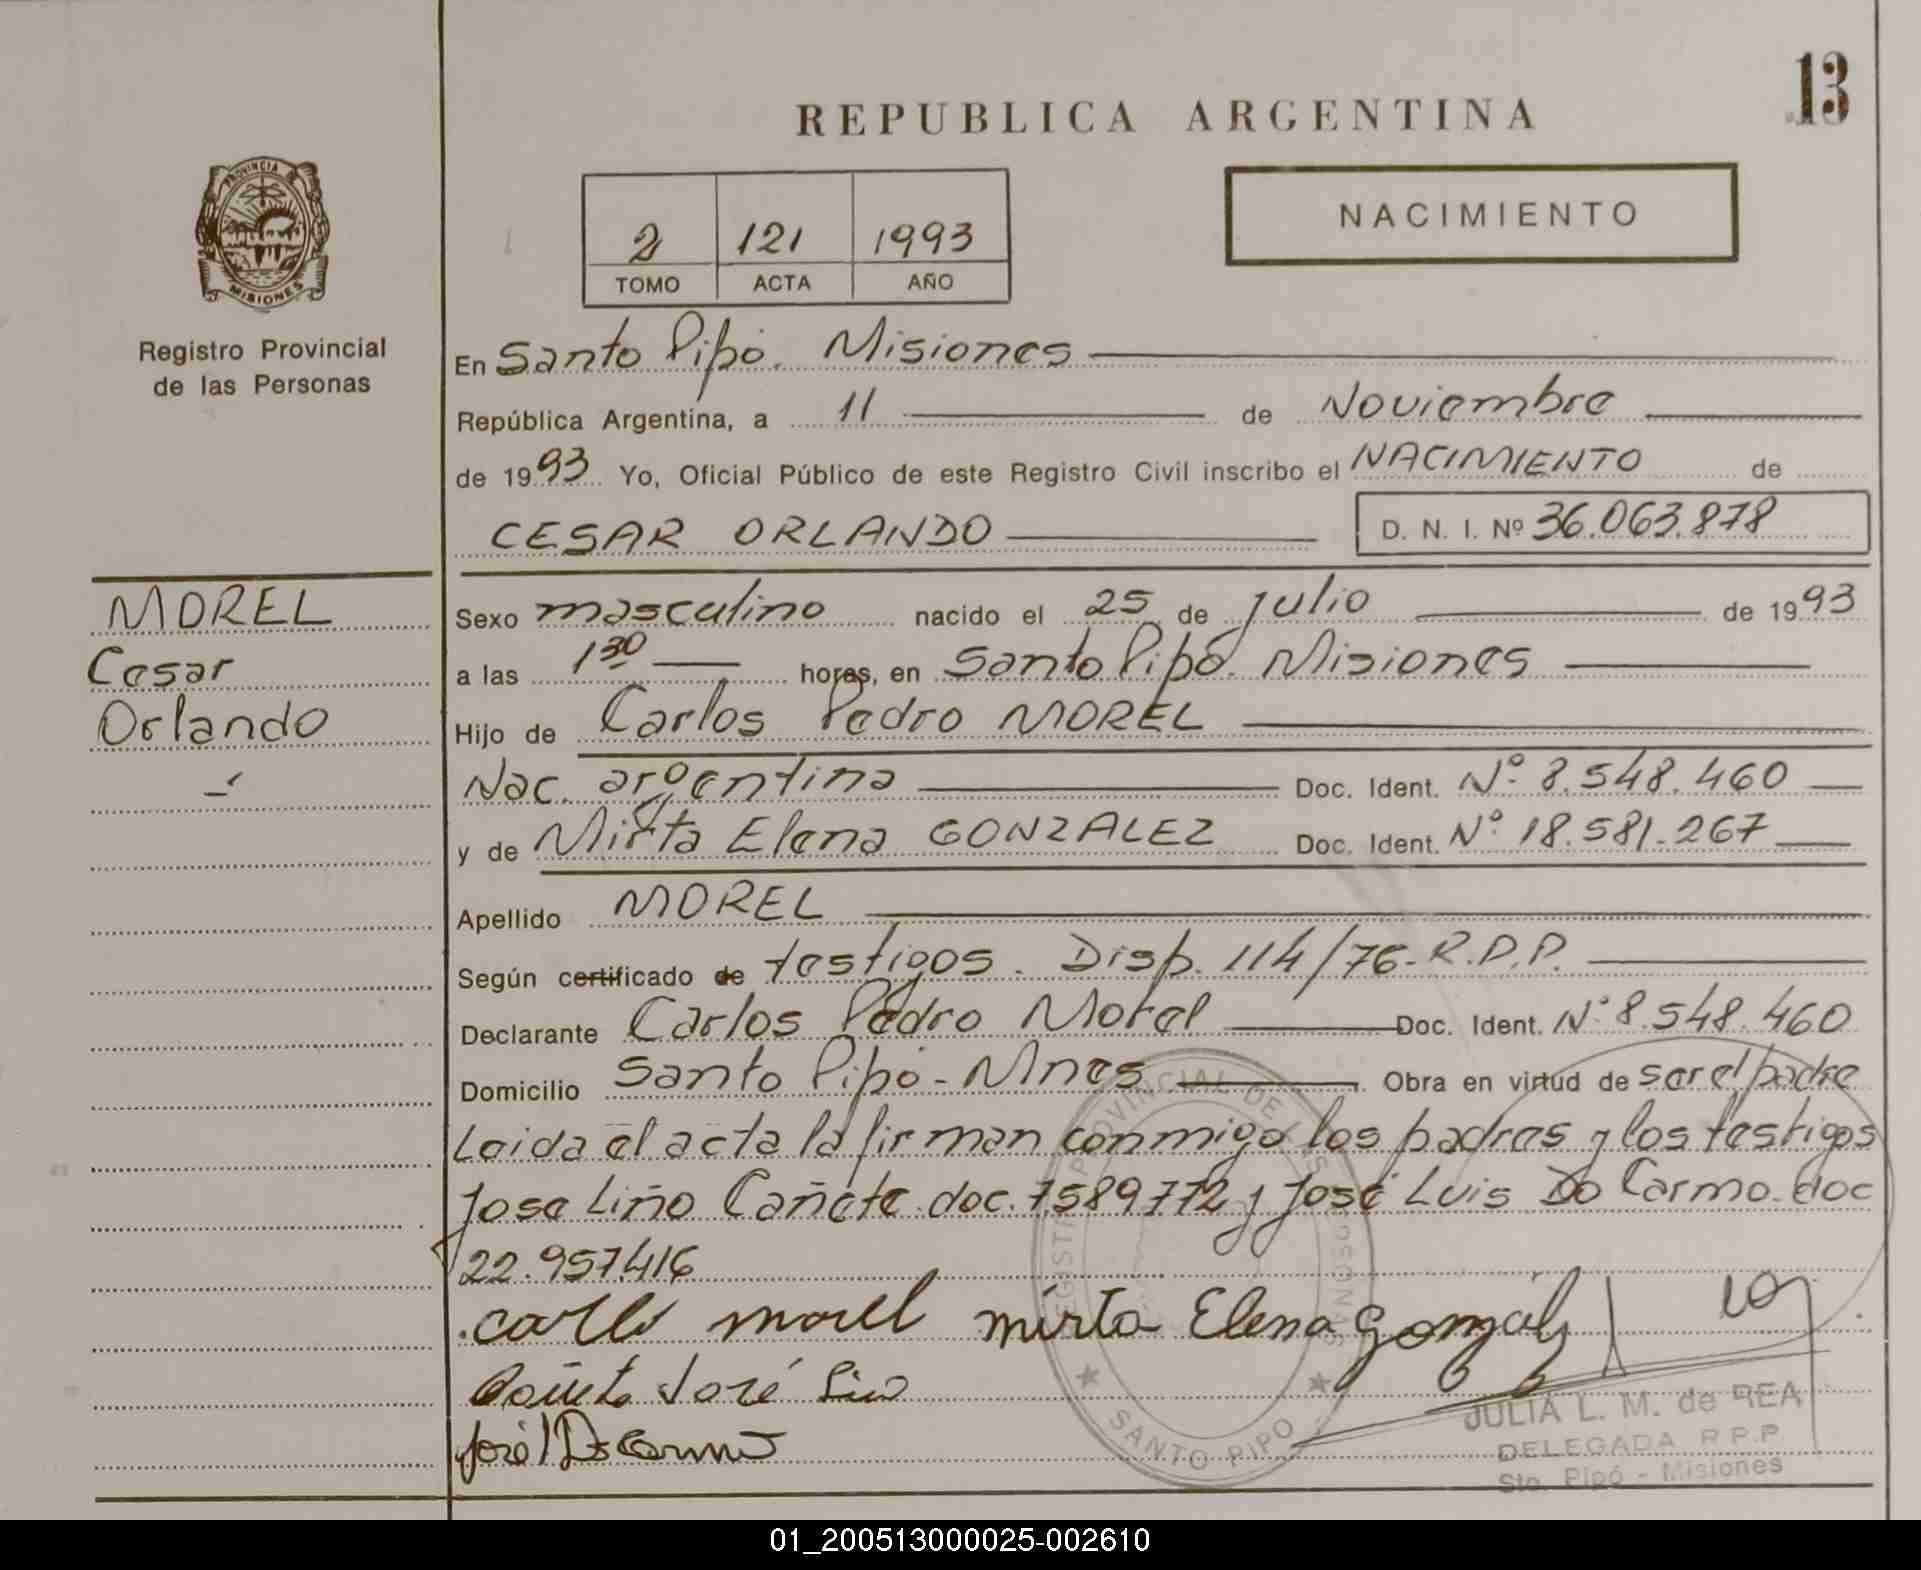 13
REPUBLICA ARGENTINA
PROVINCIA DE
MISIONES
Registro Provincial
de las Personas
2 121 1993
TOMO ACTA AÑO
NACIMIENTO
En Santo Pipó. Misiones
República Argentina, a 11 de Noviembre
de 1993 Yo, Oficial Público de este Registro Civil inscribo el NACIMIENTO de
CESAR ORLANDO D. N. I. Nº 36.063.878
MOREL
Cesar
Orlando
Sexo masculino nacido el 25 de julio de 1993
a las 1 30 horas, en Santo Pipó. Misiones
Hijo de Carlos Pedro MOREL
Nac. argentina Doc. Ident. Nº 8.548.460
y de Mirta Elena GONZALEZ Doc. Ident. Nº 18.581.267
Apellido MOREL
Según certificado de testigos. Disp. 114/76-R.P.P.
Declarante Carlos Pedro Morel Doc. Ident. Nº 8.548.460
Domicilio Santo Pipó - Mnes Obra en virtud de ser el padre
Leida el acta la firman conmigo los padres y los testigos
Jose Liño Cañete doc. 7589772 y José Luis Do Carmo. doc
22.957.416
Carlos Morel Mirta Elena Gonzalez
Cañete José Lino
José L Do Carmo
REGISTRO PROVINCIAL DE LAS PERSONAS
SANTO PIPO
JULIA L. M. de REA
DELEGADA R.P.P
Sto. Pipó - Misiones
01_200513000025-002610